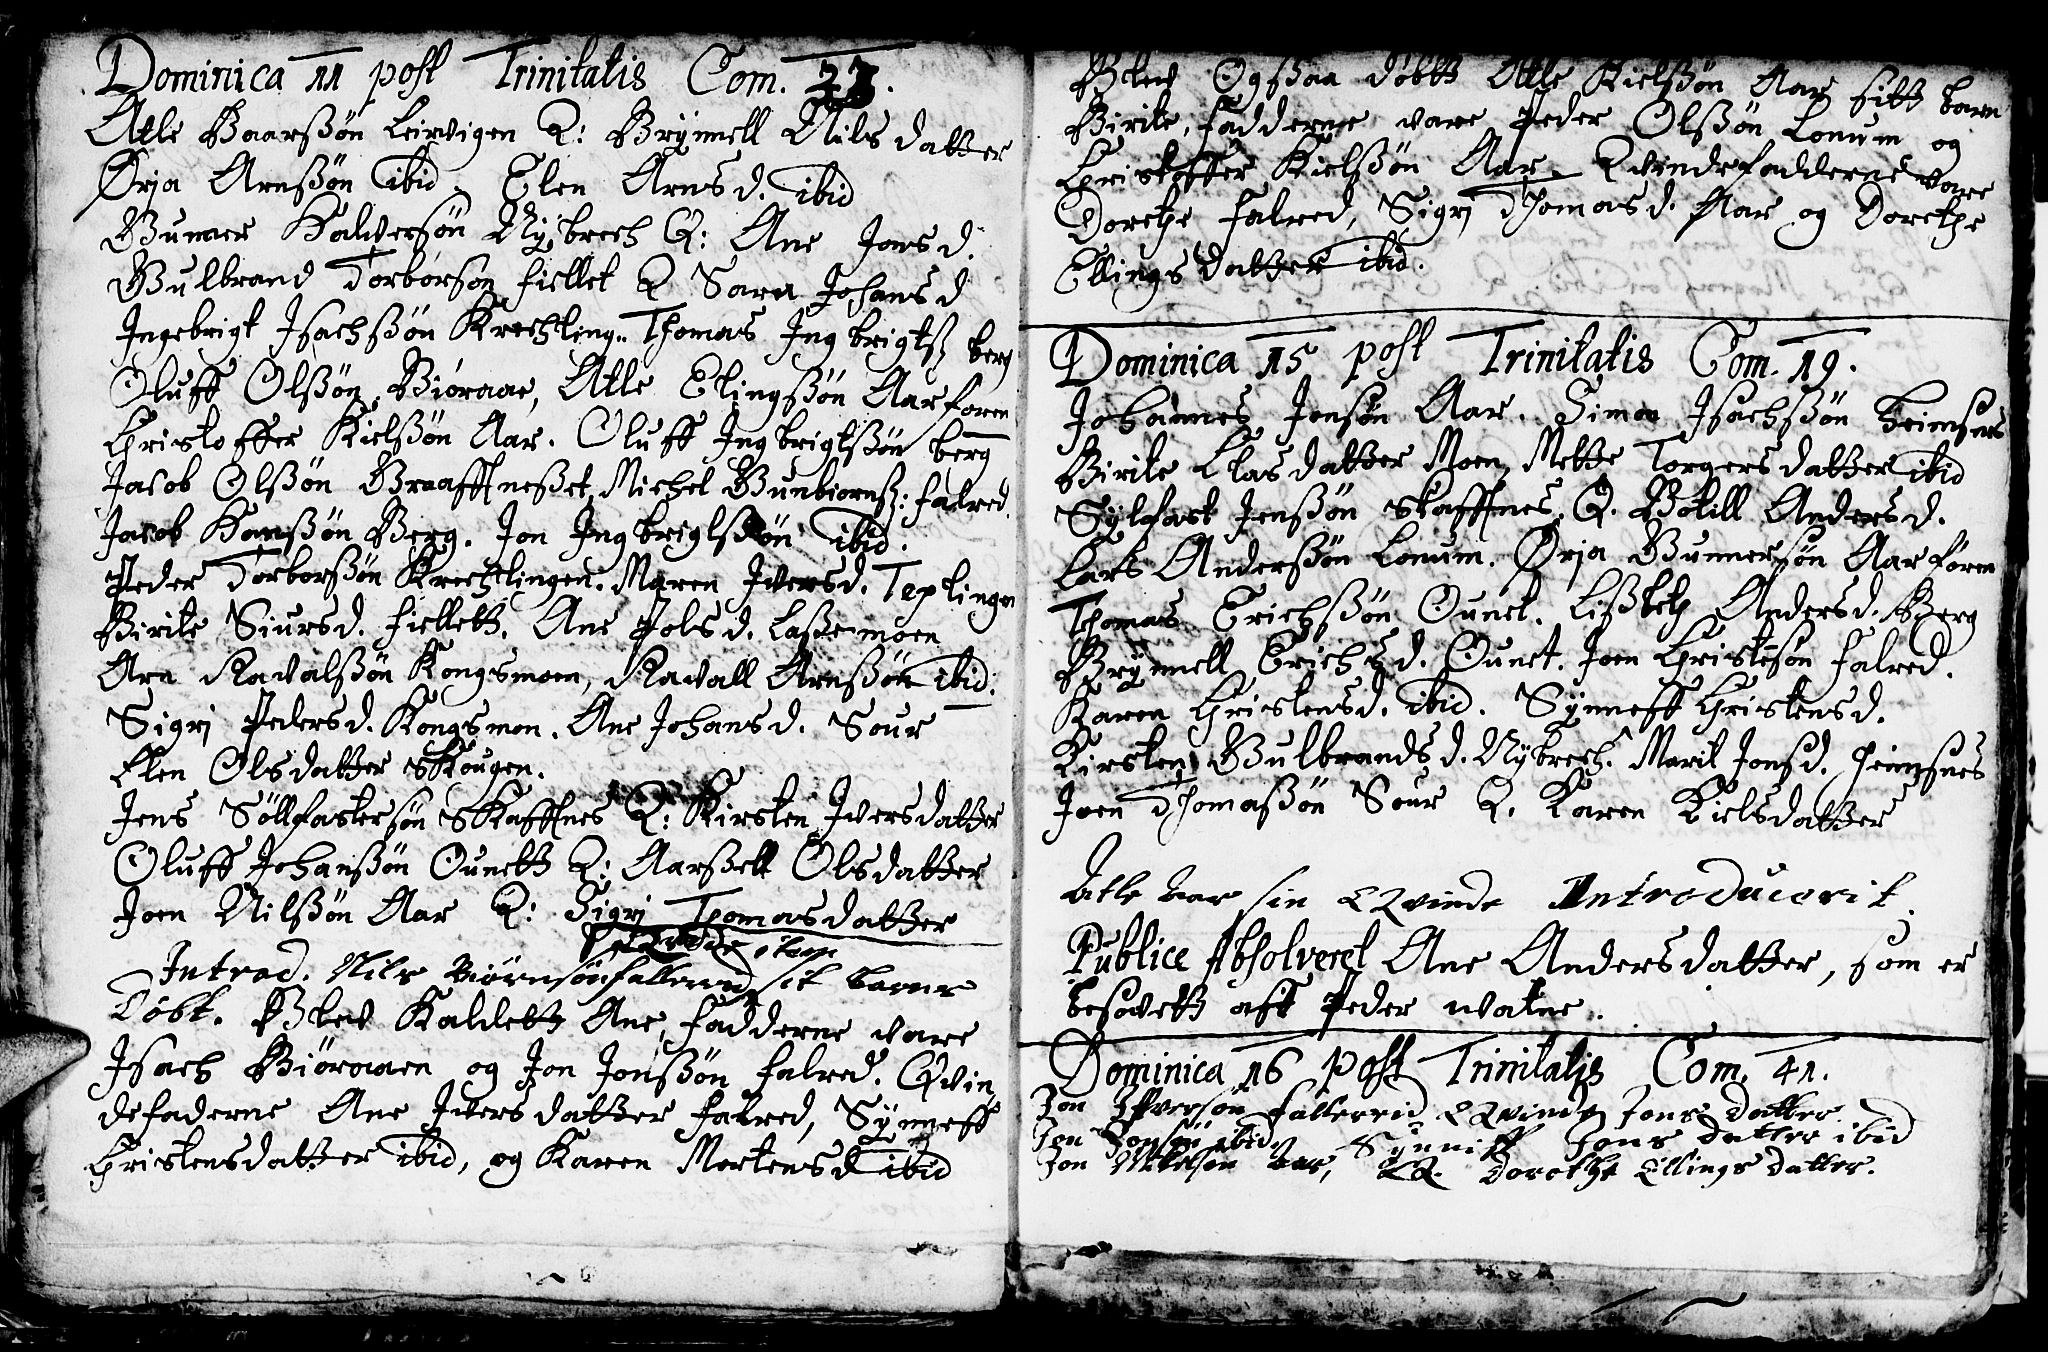 Dominica 11 post Trinitatis Com. 33.
Atle Baarßøn Leirvigen Q: Brynnell Nils datter
Ørja Arnßøn ibid. Elen Arns d. ibid
Gunner Halversøn Nybrech Q: Ane Jons d.
Gulbrand Torborsøn fiellet Q Sara Johans d
Ingebrigt Isachsøn Krechling.. Thomas Ingbrigtß berg
Oluff Olßøn Biøraae, Atle Elingßøn Aarforen
Christoffer Kielßøn Aar. Oluff Ingbrigtßøn berg
Jacob Olßøn Graaffneßet, Michel Gunbiornß: falred.
Jacob Hansßøn Berg. Jon Ingbrigtsøn ibid.
Peder Torborßøn Krechlingen. Maren Ivers d. Teplingen
Birite Siurs d. fiellett. Ane Pols d. Laßemoen
Arn Ravalßøn Kongsmoen, Ravall Arnßøn ibid.
Sigri Peders d. Kongsmon. Ane Johans d. Sour
Elen Ols datter Skougen.
Jens Søllfastersøn Skaffnes Q: Kirsten Ivers datter
Oluff Johanßøn Ounett Q: Aarßell Ols datter
Joen Nilßøn Aar Q: Sigri Thomas datter
Introd. Nils Biørnsøn fallerud sit barn
Døbt. Blev Kaldett Ane, fadderne vare
Isach Biøraaen og Jon Jonßøn falred. Qvin
defaderne Ane Ivers datter falred, Synneff
Christens datter ibid, og Karen Mortens d ibid
Blev Ogsaa døbtt Atle Kielßøn Aar sitt barn
Birite, fadderne vare Peder Olßøn Lonum og
Christoffer Kielßøn Aar. Qvindefadderne vare
Dorethe falred, Sigri Thomas d. Aar og Dorethe
Ellings datter ibid.
Dominica 15 post Trinitatis Com. 19.
Johannes Jonsøn Aar. Simon Isachßøn heimsnes
Birite Clas datter Moen, Mette Torgers datter ibid
Sylfast Jenßøn Skaffnes, Q. Botill Anders d.
Lars Anderßøn Lonum. Ørja Gunnersøn Aarføren
Thomas Erichßøn Ounet. Lißbeth Anders d. Berg
Brynnell Erichs d. Ounet. Joen Christensøn falred.
Karen Christens d. ibid. Synneff Christens d.
Kirsten Gulbrands d. Nybrech. Marit Jons d. heimsnes
Joen Thomaßøn Sour Q. Karen Kiels datter
Atle Aar sin Qvinde Introducerit.
Publice Absolveret Ane Anders datter, som er
besovett aff Peder watne.
Dominica 16 post Trinitatis Com. 41.
Jon Ifversøn fallerud Qvinde Jons datter
Jon Jonsøn ibid, Synniff Jons datter ibid
Jon Nilsøn Aar, Q. Dorethe Ellings datter.